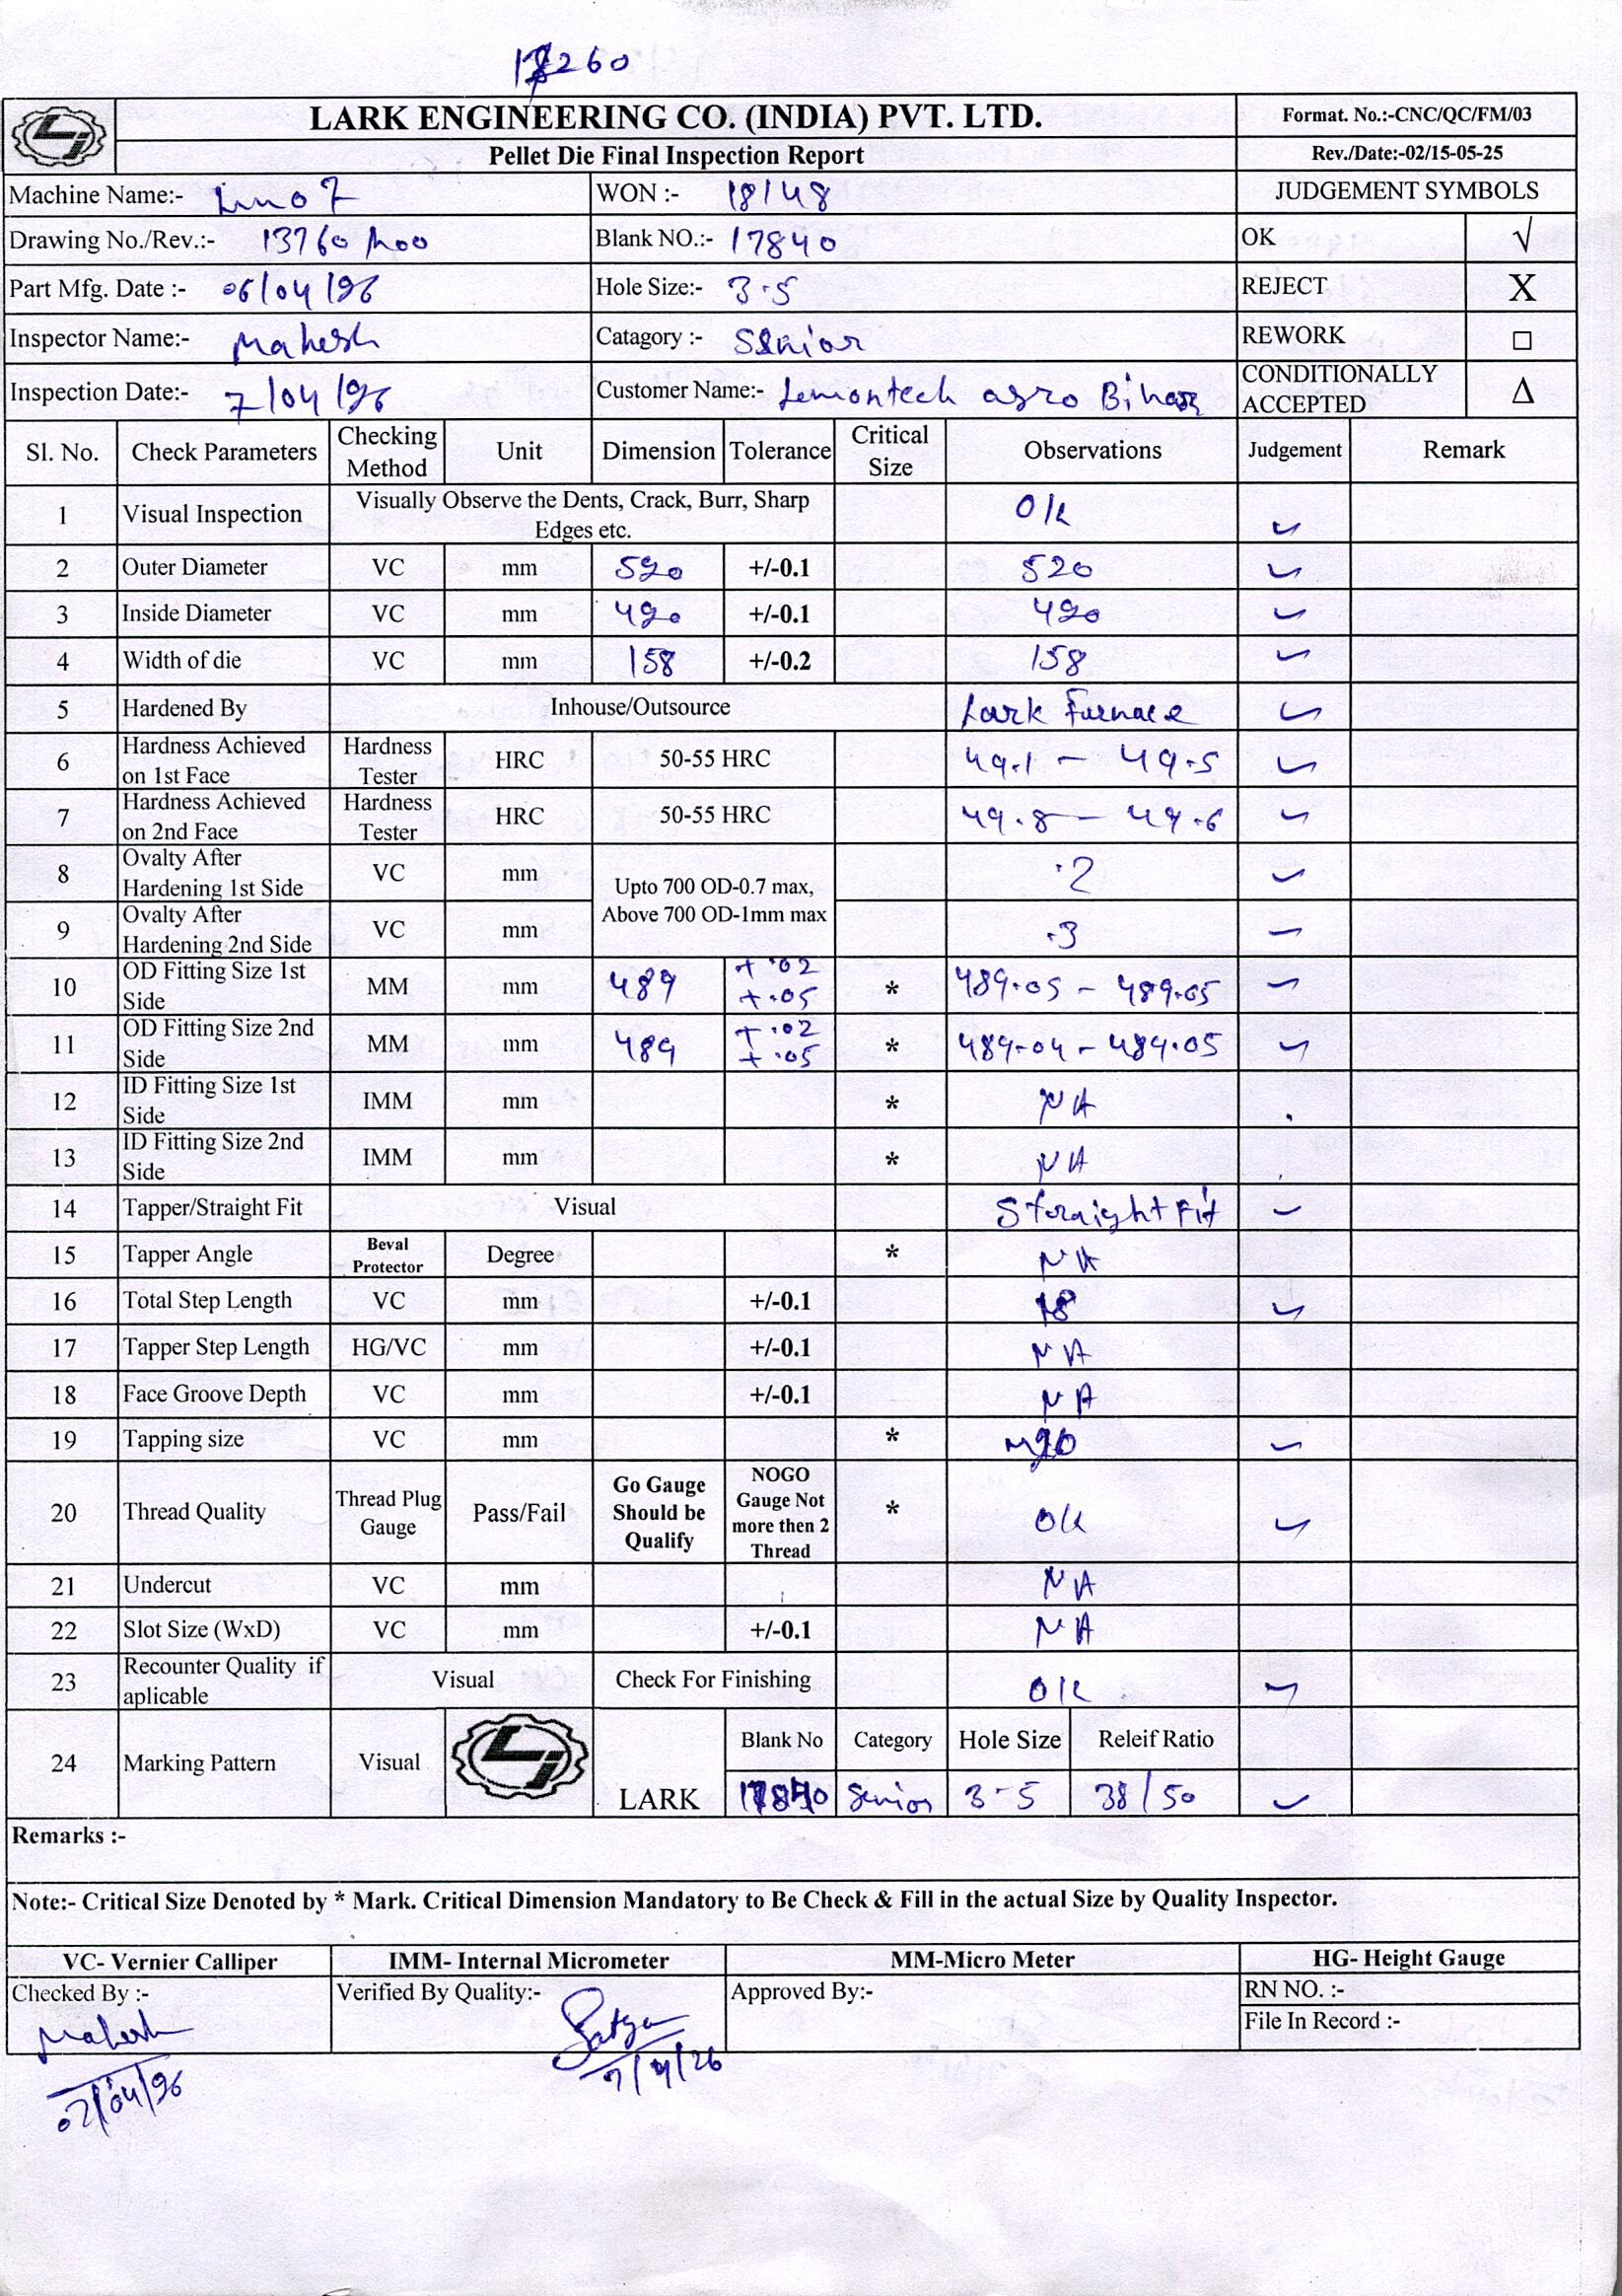 17260
LARK ENGINEERING CO. (INDIA) PVT. LTD.
Format. No.:-CNC/QC/FM/03
Pellet Die Final Inspection Report
Rev./Date:-02/15-05-25
Machine Name:-
WON :- 18148
JUDGEMENT SYMBOLS
Drawing No./Rev.:- 13760
Blank NO.:- 17840
OK √
Part Mfg. Date :- 06/04/26
Hole Size:- 3.5
REJECT X
Inspector Name:- Mahesh
Catagory :- Senior
REWORK □
Inspection Date:- 7/04/26
Customer Name:- Lemontech agro Bihar
CONDITIONALLY ACCEPTED Δ
Sl. No. Check Parameters Checking Method Unit Dimension Tolerance Critical Size Observations Judgement Remark
1 Visual Inspection Visually Observe the Dents, Crack, Burr, Sharp Edges etc. OK ✓
2 Outer Diameter VC mm 520 +/-0.1 520 ✓
3 Inside Diameter VC mm 420 +/-0.1 420 ✓
4 Width of die VC mm 158 +/-0.2 158 ✓
5 Hardened By Inhouse/Outsource Lark Furnace ✓
6 Hardness Achieved on 1st Face Hardness Tester HRC 50-55 HRC 49.1 - 49.5 ✓
7 Hardness Achieved on 2nd Face Hardness Tester HRC 50-55 HRC 49.8 - 49.6 ✓
8 Ovalty After Hardening 1st Side VC mm Upto 700 OD-0.7 max, Above 700 OD-1mm max .2 ✓
9 Ovalty After Hardening 2nd Side VC mm .3 ✓
10 OD Fitting Size 1st Side MM mm 489 +.02 +.05 * 489.05 - 489.05 ✓
11 OD Fitting Size 2nd Side MM mm 489 +.02 +.05 * 489.04 - 489.05 ✓
12 ID Fitting Size 1st Side IMM mm * NA
13 ID Fitting Size 2nd Side IMM mm * NA
14 Tapper/Straight Fit Visual Straight Fit ✓
15 Tapper Angle Beval Protector Degree * NA
16 Total Step Length VC mm +/-0.1 18 ✓
17 Tapper Step Length HG/VC mm +/-0.1 NA
18 Face Groove Depth VC mm +/-0.1 NA
19 Tapping size VC mm * M20 ✓
20 Thread Quality Thread Plug Gauge Pass/Fail Go Gauge Should be Qualify NOGO Gauge Not more then 2 Thread * OK ✓
21 Undercut VC mm NA
22 Slot Size (WxD) VC mm +/-0.1 NA
23 Recounter Quality if aplicable Visual Check For Finishing OK ✓
24 Marking Pattern Visual LARK Blank No Category Hole Size Releif Ratio
17840 Senior 3-5 38/50 ✓
Remarks :-
Note:- Critical Size Denoted by * Mark. Critical Dimension Mandatory to Be Check & Fill in the actual Size by Quality Inspector.
VC- Vernier Calliper IMM- Internal Micrometer MM-Micro Meter HG- Height Gauge
Checked By :- Mahesh
Verified By Quality:- Satya
Approved By:-
RN NO. :-
File In Record :-
07/04/26
7/4/26